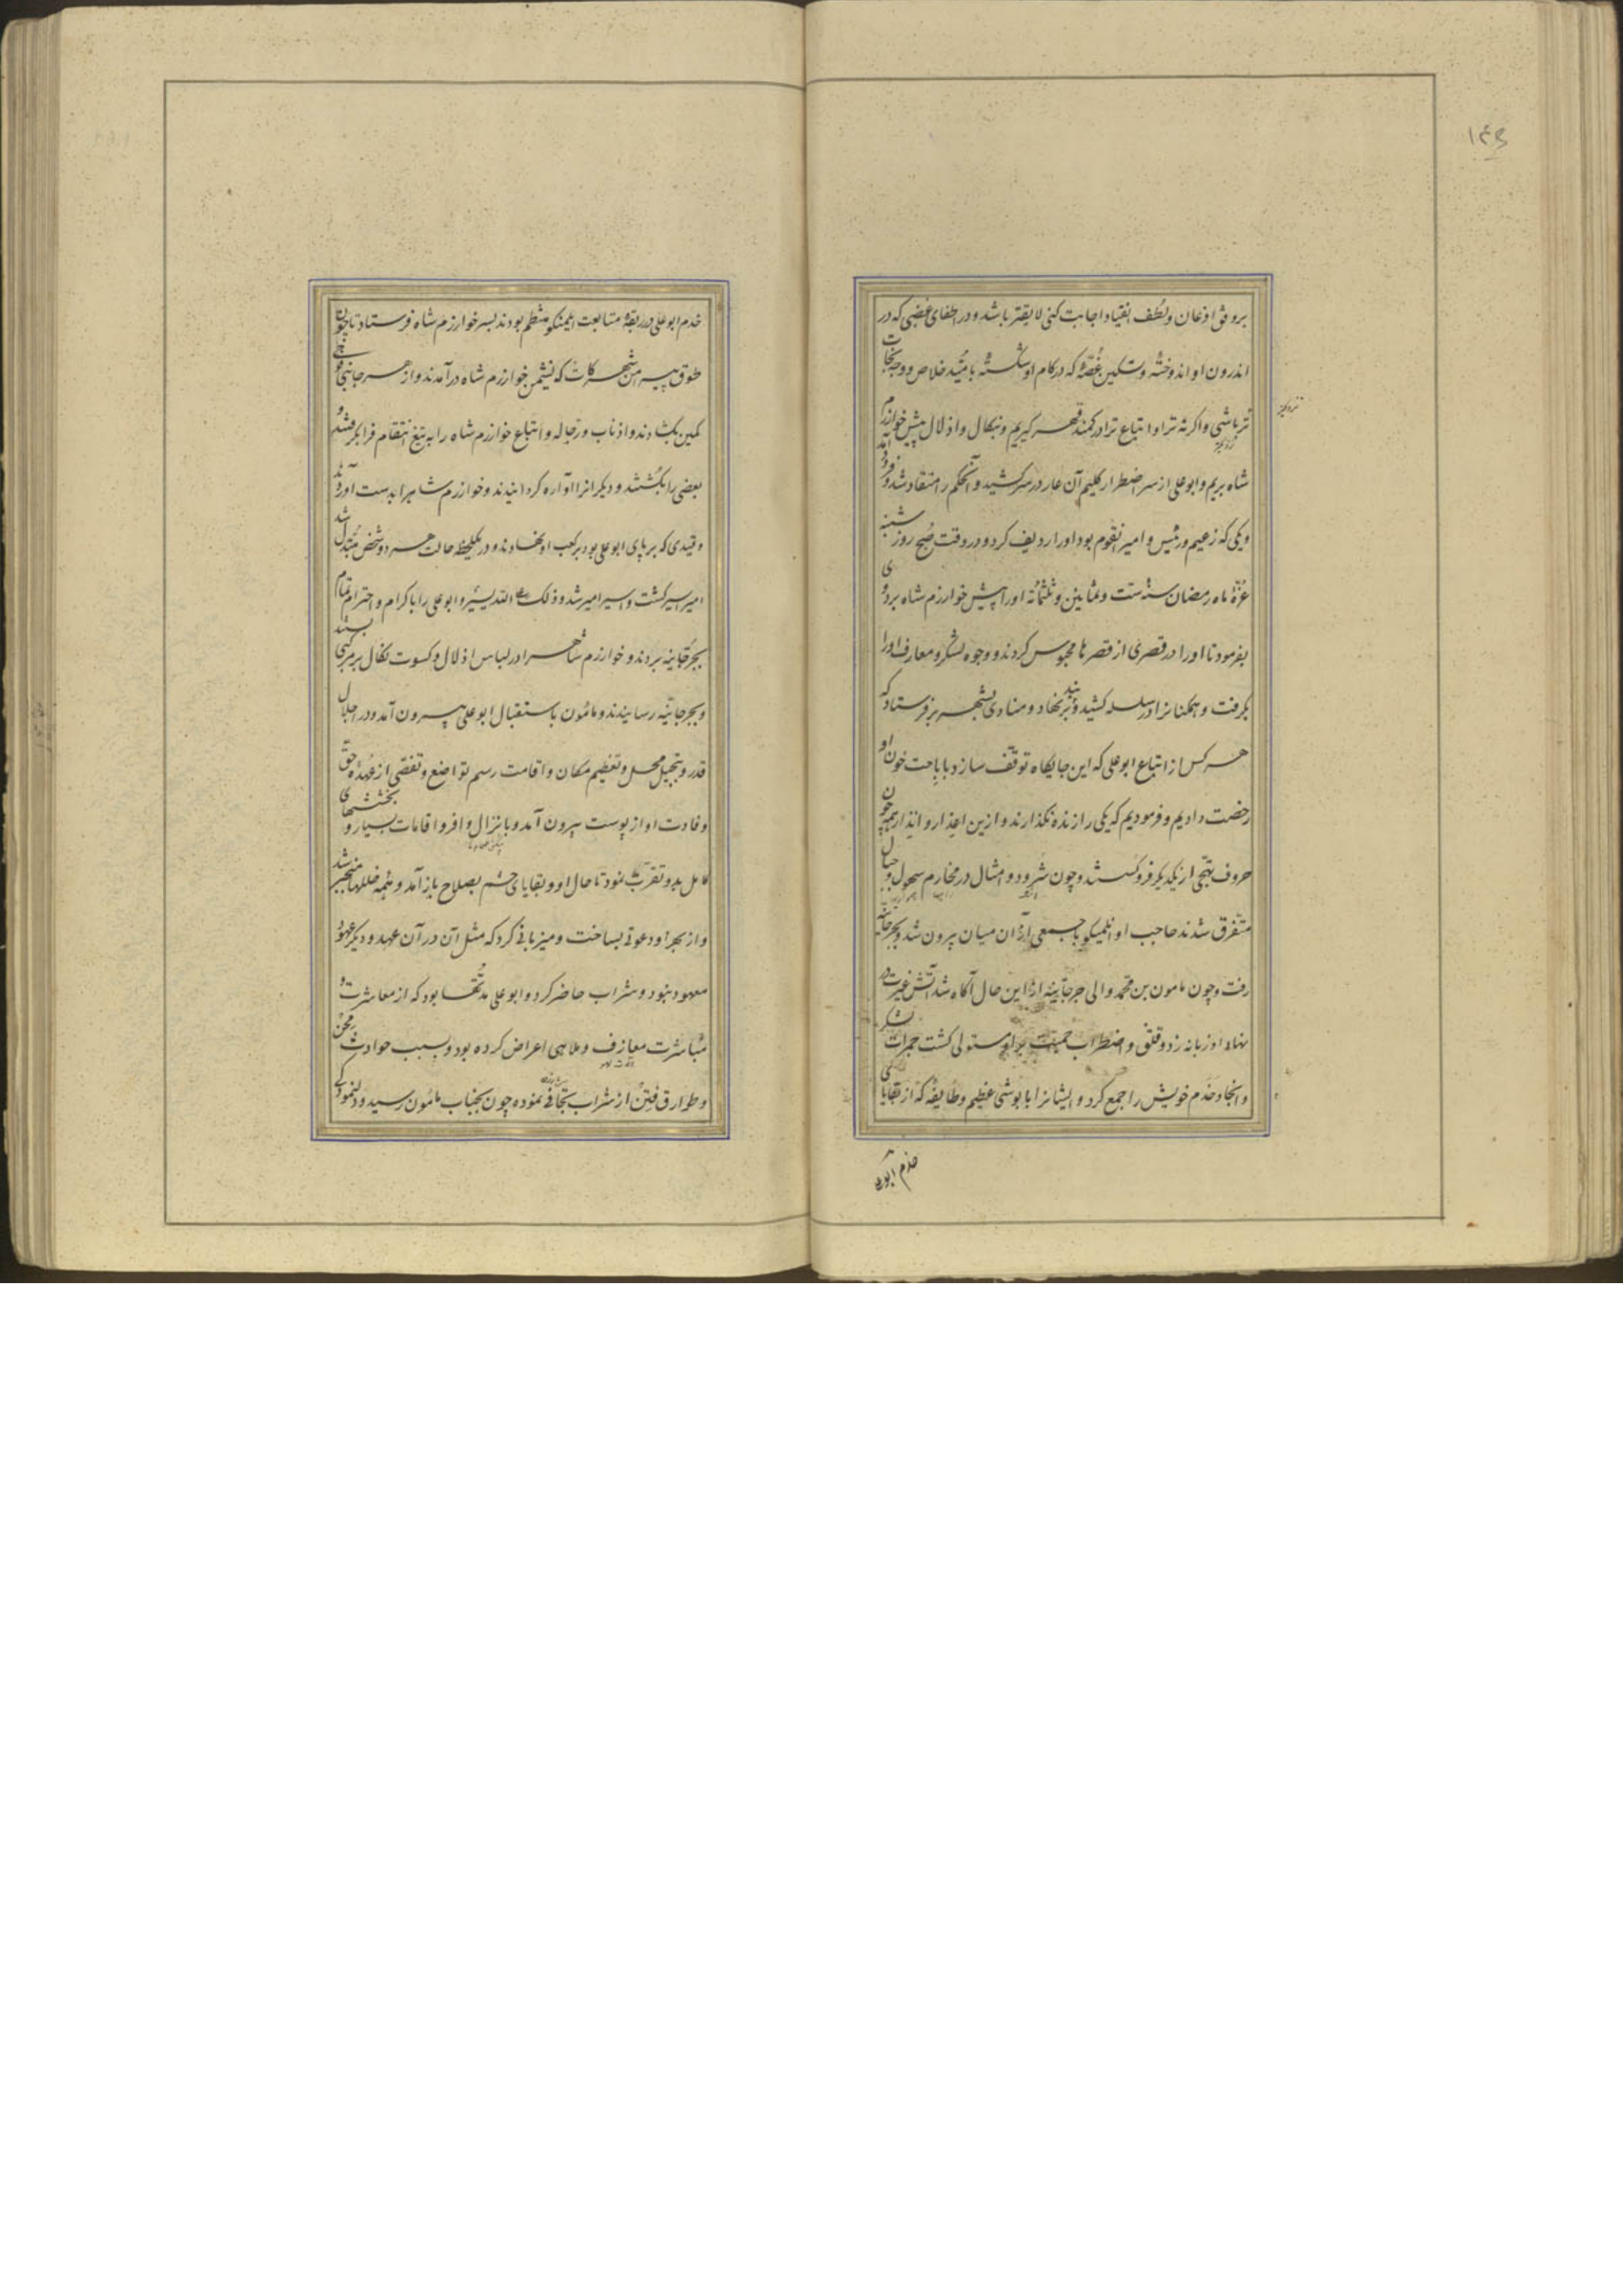 ۱۴۵
بر وفق اذعان و لطف انقیاد اجابت کنی لایق‌تر باشد و در اطفای غضبی که در
اندرون او اندوخته و تسکین غُصّهٔ که در کام او شکسته بامید خلاص و وجه نجات
تر باشی و اکر نه ترا و اتباع ترا در کمند قهر کیریم و بنکال و اذلال پیش خوارزم
شاه بریم و ابو علی از سر اضطرار کلیم آن عار در سر کشید و آن حکم را منقاد شد و فرود آمد
و یکی که زعیم و رئیس و امیر آن قوم بود او را ردیف کرد و در وقت صُبح روز شنبه
غرّهٔ ماه رمضان سنهٔ ستّ و ثمانین و ثلثمائه او را پیش خوارزم شاه بردی
بفرمود تا او را در قصری از قصرها محبوس کردند و وجوه لشکر و معارف او را
بکرفت و همکنانرا در سلسله کشید و بند برنهاد و منادی بشهر بر فرستاد که
هر کس از اتباع ابو علی که این جایکاه توقّف سازد باباحت خون او
رخصت دادیم و فرمودیم که یکی را زنده نکذارند و ازین اعذار و انذار همچون
حروف تهجّی از یکدیکر فرو کسستند و چون شرود و امثال در مخارم سهول و جبال
متفرق شدند حاجب او ایلمنکو با جمعی از آن میان بیرون شد و بجرجانیّه
رفت و چون مامون بن محمد والی جرجانیه از این حال آکاه شد آتش غیرت در
نهاد او زبانه زد و قلق و اضطراب حمیّت بر او مستولی کشت جمرات لشکر
و انجاد خدم خویش را جمع کرد و ایشانرا با بوشی عظیم و طایفهٔ که از بقایای
خدم ابو علی
خدم ابو علی در ربقهٔ متابعت ایلمنکو منتظم بودند بسر خوارزم شاه فرستاد تا چون
طوق پیرامن شهر کاث که نشیمن خوارزم شاه در آمدند و از هر جانبی
کمین بکشادند و اذناب و رجاله و اتباع خوارزم شاه را به تیغ انتقام فرا کرفتند و
بعضی را بکُشتند و دیکرانرا آواره کردانیدند و خوارزم شاه را بدست آوردند
و قیدی که بر پای ابو علی بود بر کعب او نهادند و در یکلحظه حالت هر دو شخص مبُدل شد
امیر اسیر کشت و اسیر امیر شد و ذلک علی الله یسیر و ابو علی را با کرام و احترام تمام
بجرجانیه بردند و خوارزم شاه را در لباس اذلال و کسوت نکال بر مرکبی بستند
و بجرجانیّه رسانیدند و مأمون باستقبال ابو علی بیرون آمد و در اجلال
قدر و تبجیل محل و تعظیم مکان و اقامت رسم تواضع و تفصّی از عُهدهٔ حقّ
وفادت او از پوست بیرون آمد و بانزال وافر و اقامات بسیار و بخششهای
کامل بدو تقرّب نمود تا حال او و بقایای حشم بصلاح باز آمد و همه خللها منجبر شد
و از بهر او دعوتی بساخت و میزبانی کرد که مثل آن در آن عهد و دیکر عهود
معهود نبود و شراب حاضر کرد و ابو علی مدّتها بود که از معاشرت و
مُباشرت معازف و ملاهی اعراض کرده بود و بسبب حوادث مِحَن
و طوارق فِتَن از شراب تجافی نموده چون بجناب مأمون رسید و